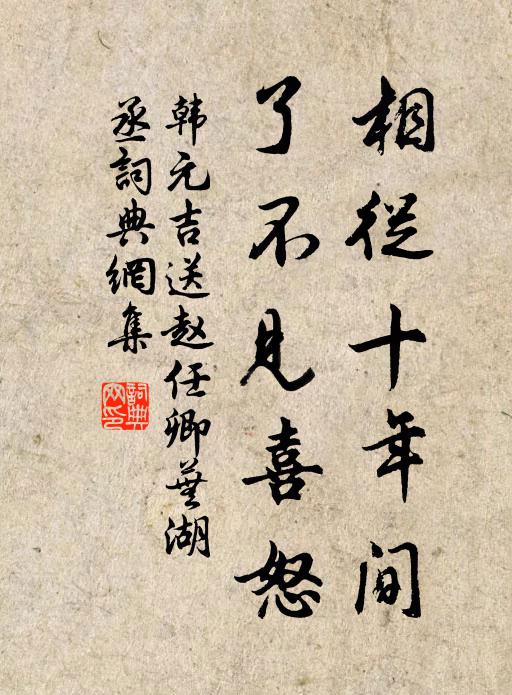 相從十年间
了不見喜怒
韩元吉送赵任卿蕪湖
丞詞典網集
詞典網印